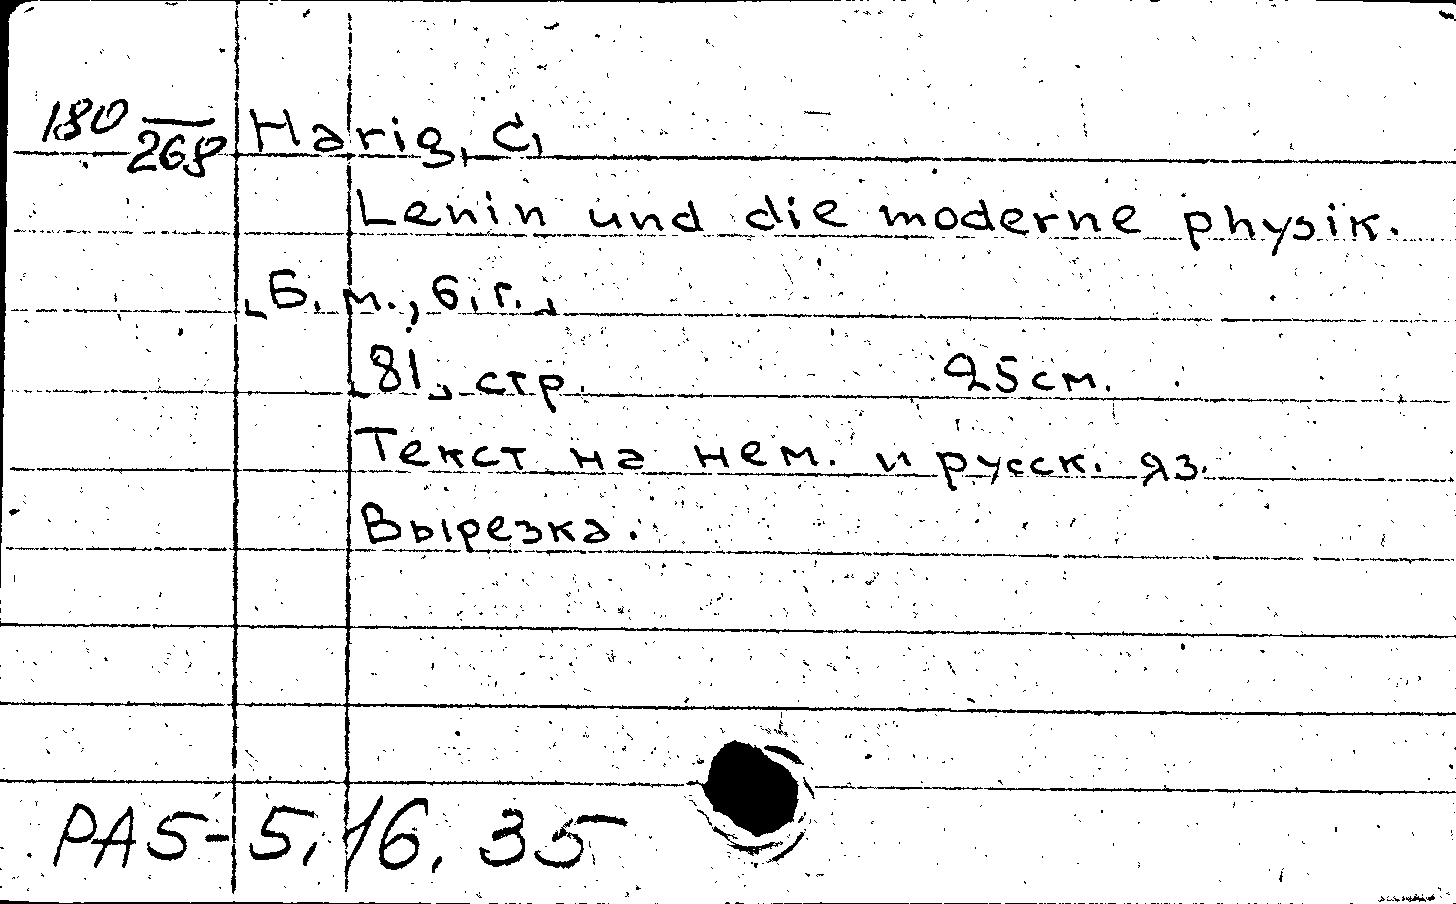 180/268 Harig, C,
Lenin und die moderne physik.
[Б. м., б. г.]
[81] стр. 25см.
Текст на нем. и русск. яз.
Вырезка.
РА5-5, 16, 35